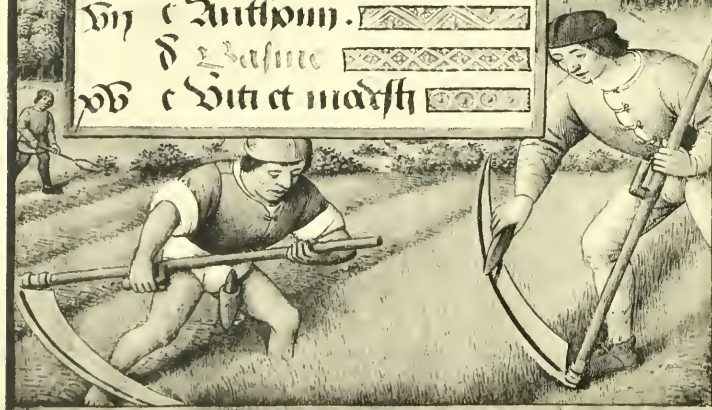 vij e Anthonii.
d Basine
xv e Viti et modesti